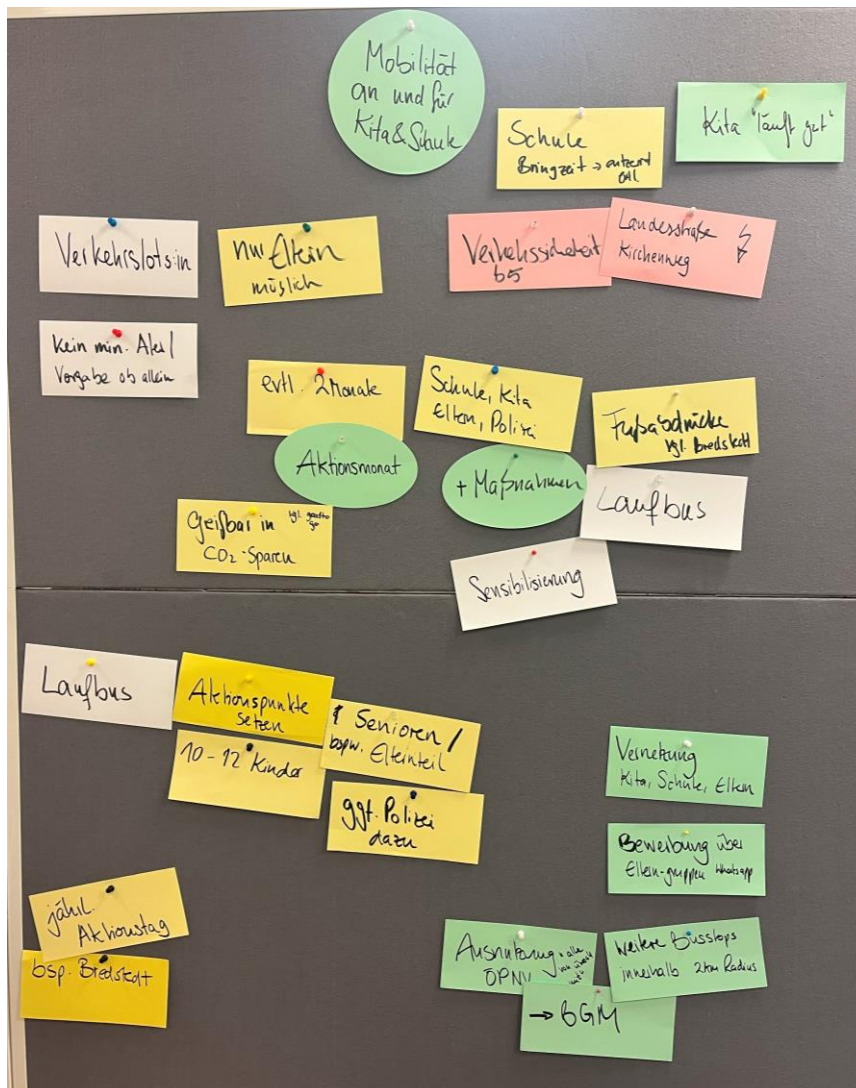 Mobilität
an und für
Kita & Schule
Schule
Bringzeit →
Kita "läuft gut"
Verkehrslots:in
nur Eltern
möglich
Verkehrssicherheit
b5
Landesstraße
Kirchenweg
kein min. Alter /
Vorgabe ob allein
evtl. 2 Monate
Schule, Kita
Eltern, Polizei
Fußabdrücke
vgl. Bredstedt
Aktionsmonat
+ Maßnahmen
Laufbus
Greifbar in vgl.
CO2-Sparen
Sensibilisierung
Laufbus
Aktionspunkte
setzen
Senioren /
bspw. Elternteil
10-12 Kinder
ggf. Polizei
dazu
Vernetzung
Kita, Schule, Eltern
Bewerbung über
Eltern-gruppen Whatsapp
jährl.
Aktionstag
bsp. Bredstedt
Ausnutzung
ÖPNV
weitere Busstops
innerhalb 2km Radius
→ BGM